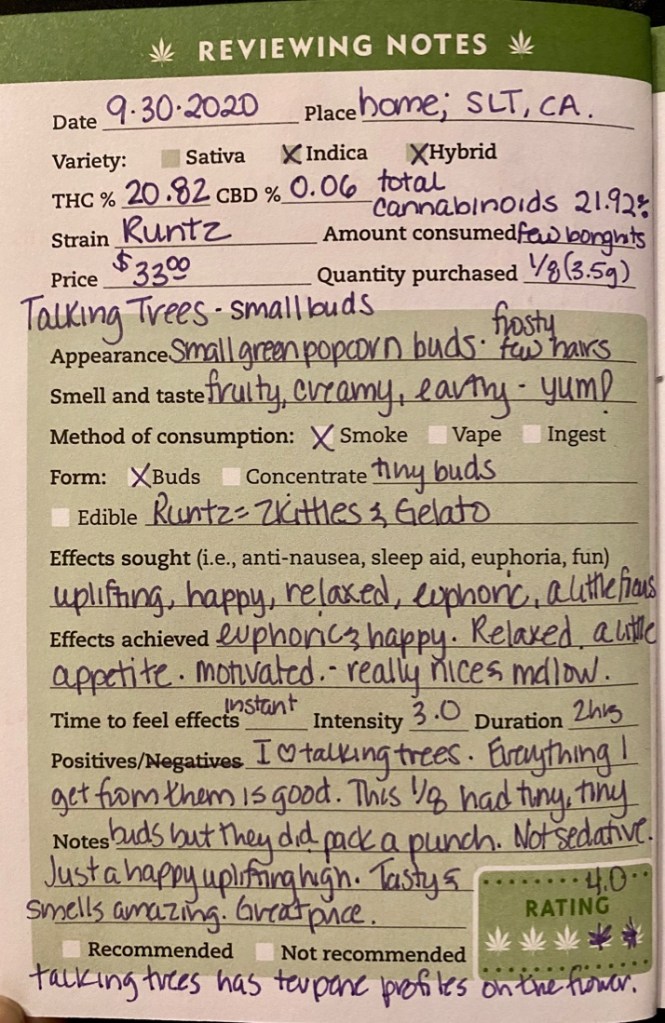 REVIEWING NOTES
Date 9.30.2020 Place home; SLT, CA.
Variety: Sativa X Indica X Hybrid
THC % 20.82 CBD % 0.06 total
cannabinoids 21.92%
Strain Runtz Amount consumed few bonghits
Price $33.00 Quantity purchased 1/8 (3.5g)
Talking Trees - small buds
frosty
Appearance Small green popcorn buds. few hairs
Smell and taste fruity, creamy, earthy - yum!
Method of consumption: X Smoke Vape Ingest
Form: X Buds Concentrate tiny buds
Edible Runtz = Zkittles & Gelato
Effects sought (i.e., anti-nausea, sleep aid, euphoria, fun)
uplifting, happy, relaxed, euphoric, a little
Effects achieved euphoric & happy. Relaxed. a little
appetite. motivated. - really nice & mellow.
Time to feel effects instant Intensity 3.0 Duration 2hrs
Positives/Negatives I ♡ talking trees. Everything I
get from them is good. This 1/8 had tiny, tiny
Notes buds but they did pack a punch. Not sedative.
Just a happy uplifting high. Tasty &
4.0
smells amazing. Great price.
RATING
Recommended Not recommended
talking trees has terpene profiles on the flower.